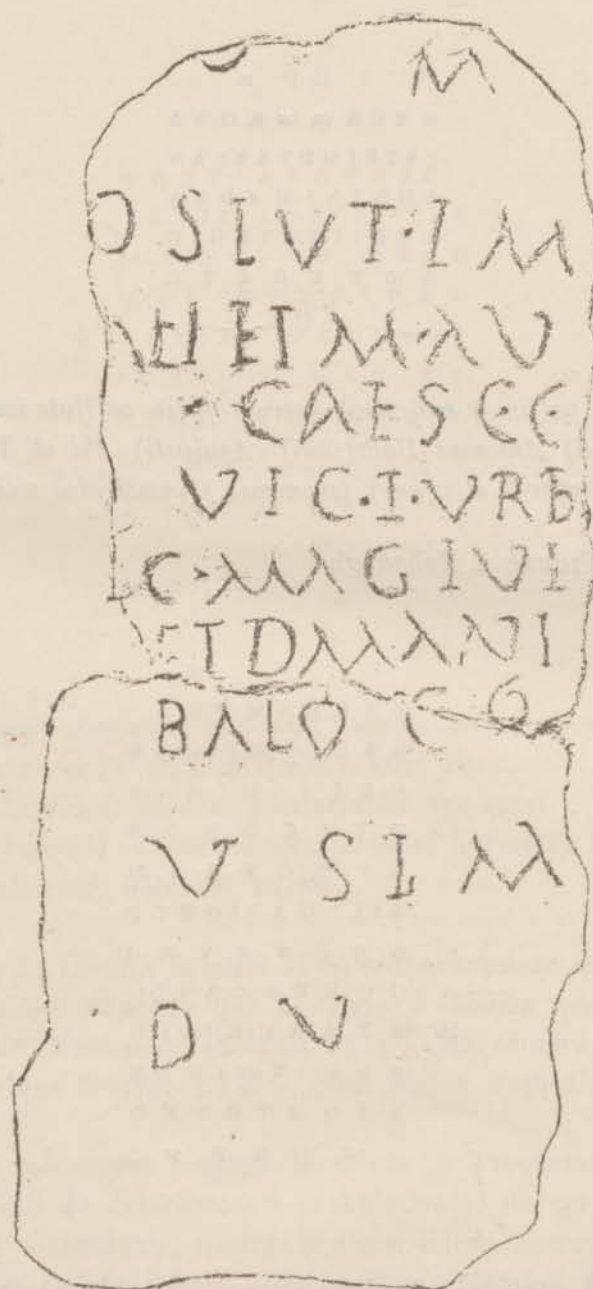 M
O S L V T · I M
ET M · A V
· CAES C C ·
V I C · I · V R B
C · M A G I V I
E T D M A N I
B A L O C O
V S L M
D V